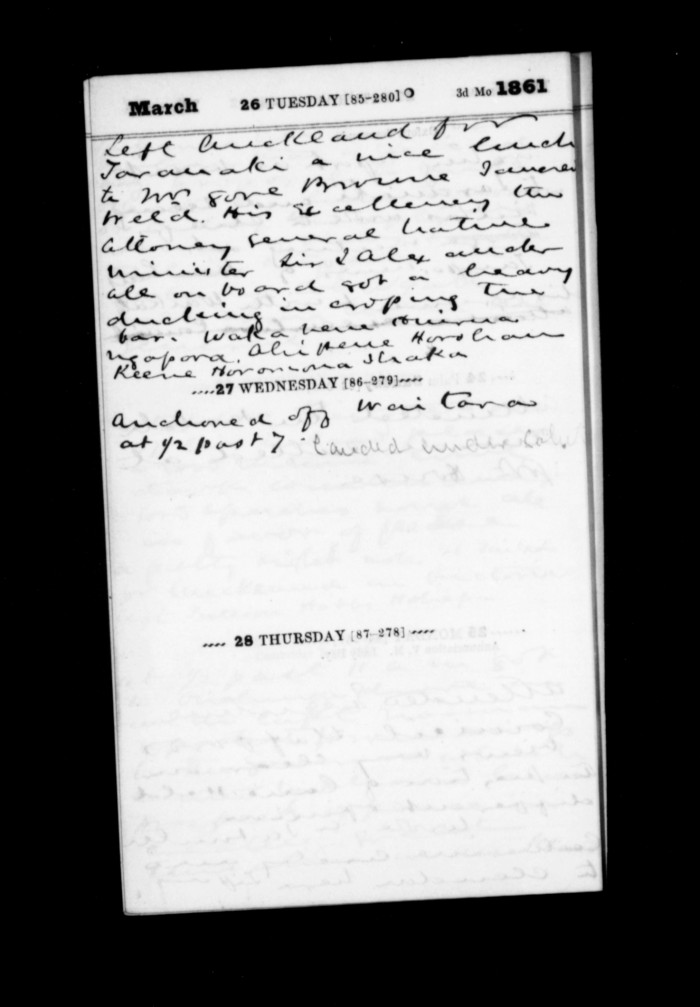 March 26 TUESDAY [85-280] 3d Mo 1861
Left Auckland for
Taranaki a nice lunch
to Mrs gore Browne
Weld. His Excellency the
Attorney general Native
Minister Sir J Alexander
all on board got a heavy
ducking in croping the
bar. Waka nene
ngapora. Horohau
Keene Horomona
27 WEDNESDAY [86-279]
Anchored off Waitara
at 1/2 past 7 Landed under
28 THURSDAY [87-278]